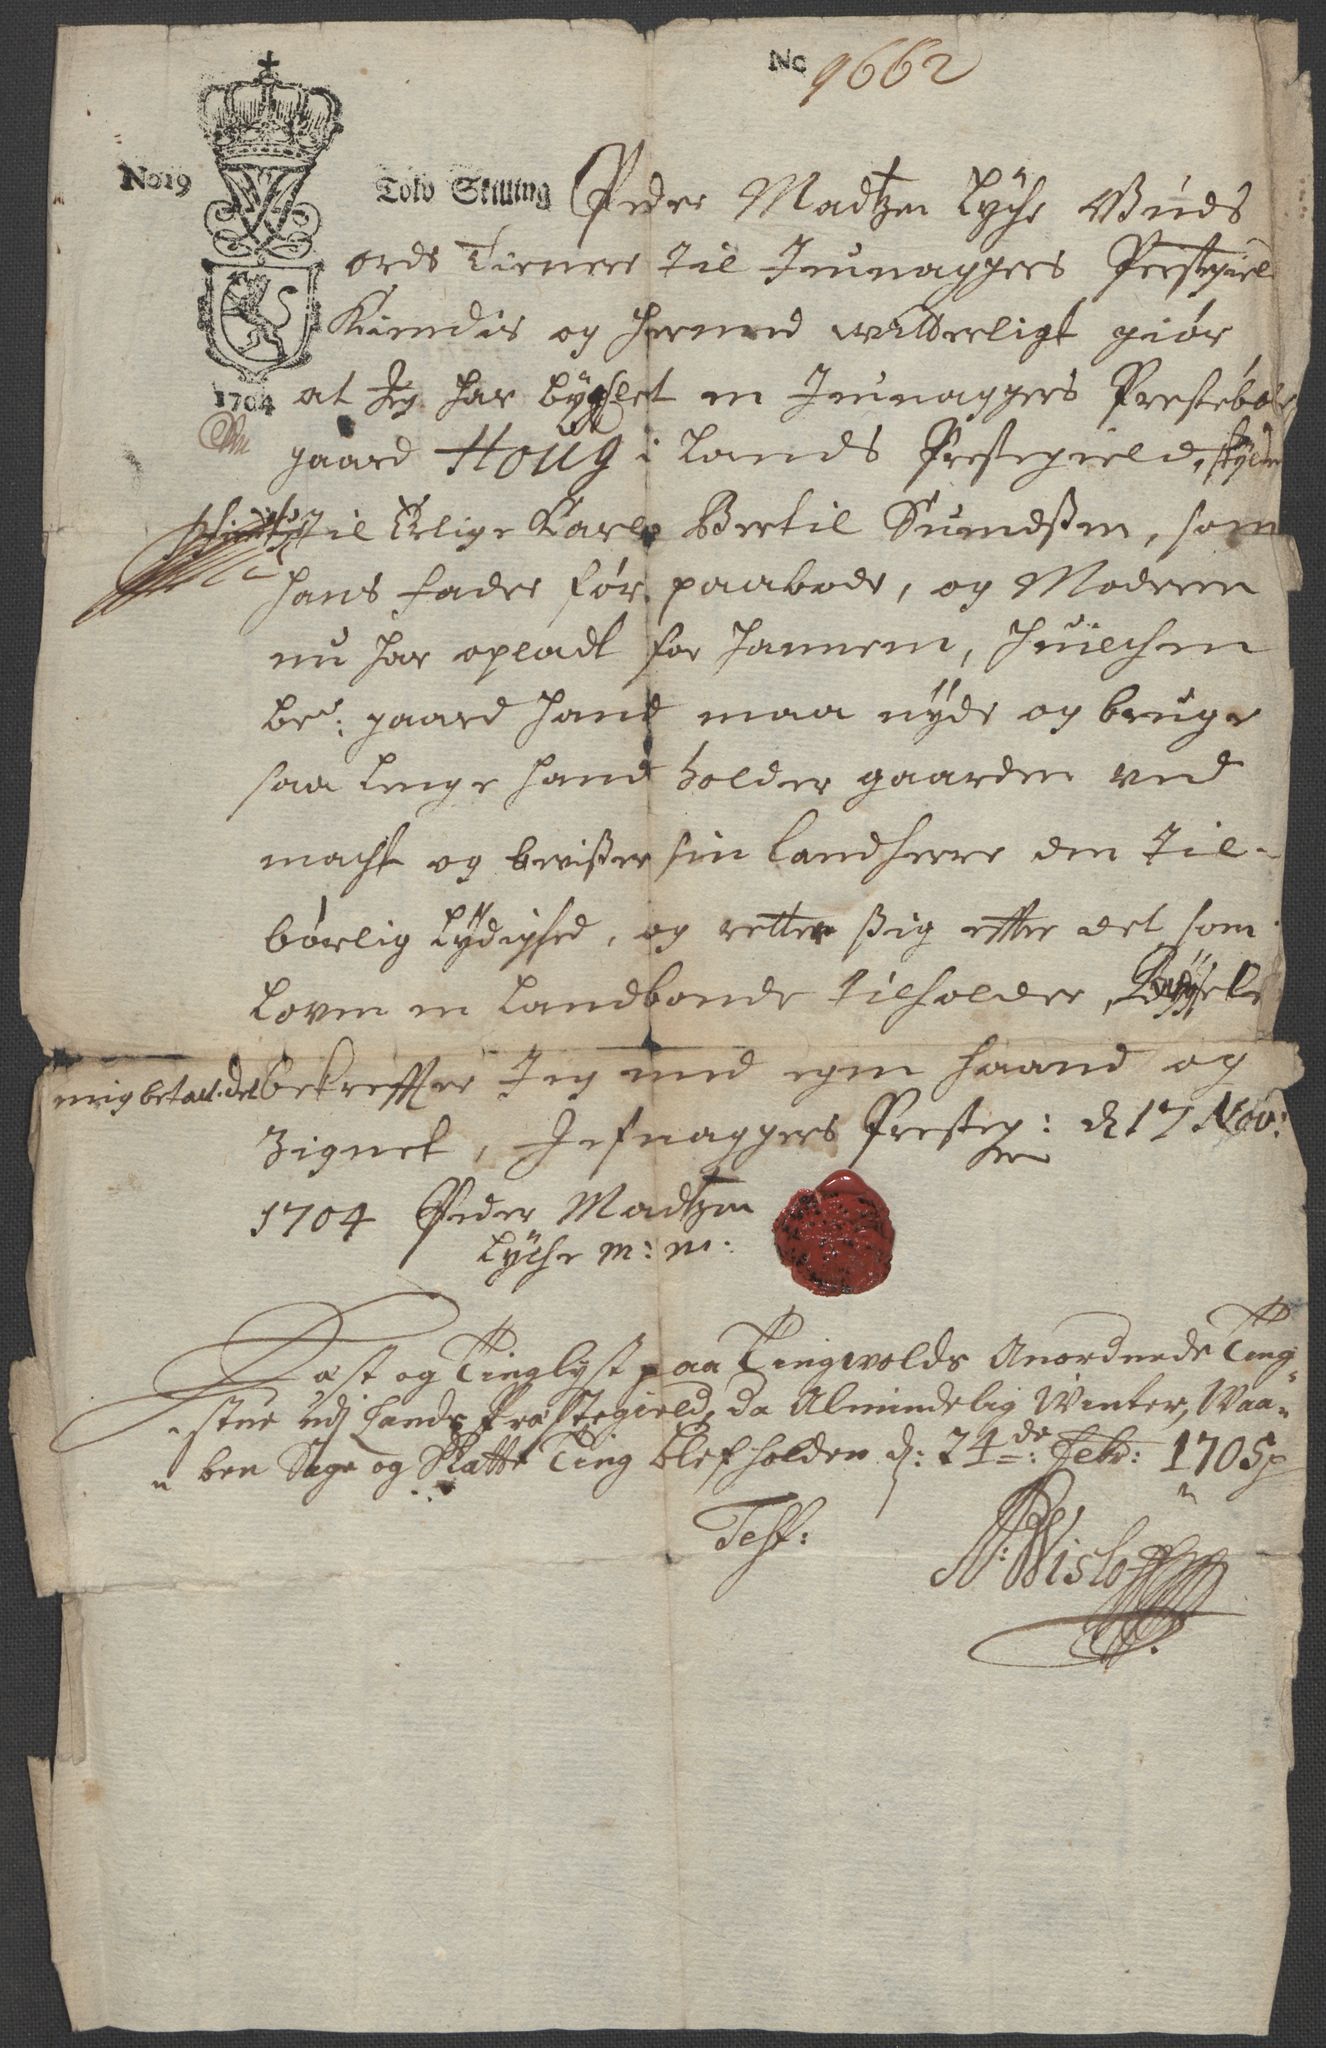 No 9662
No 19
Tolv Skilling Peder Madtzen Lyche Guds
ords Tienere til Jeunaggers Prestegield
Kiendis og hermed witterligt giør
1704 at Jeg har bygslet en Jeunaggers Prestebols
gaard Houg i Lands Prestegield, skylder
til Erlige Karl Bertil Sundsßen, som
hans fader før paaboede, og Moderen
nu har opladt for hannem, huilchen
be:te gaard hand maa nyde og bruge
saa lenge hand holder gaarden ved
macht og bevißer sin Landherre den til-
børlig lydighed, og retter ßig efter det som
Loven en Landbonde tilholder, Bøxselen
mig betalt. det bekreffter Jeg med egen haand og
Zignet, Jefnaggers Presteg: d 17 Nov:
1704 Peder Madtzen
Lyche m: m:
Læst og Tinglyst paa Tingvolds Anordnede Ting
stue udj Lands Præstegield, da Almindelig Winter, Waa-
ben Sage og Skatte Ting blef holden d: 24de: Febr: 1705
Test:
N: Wisløff